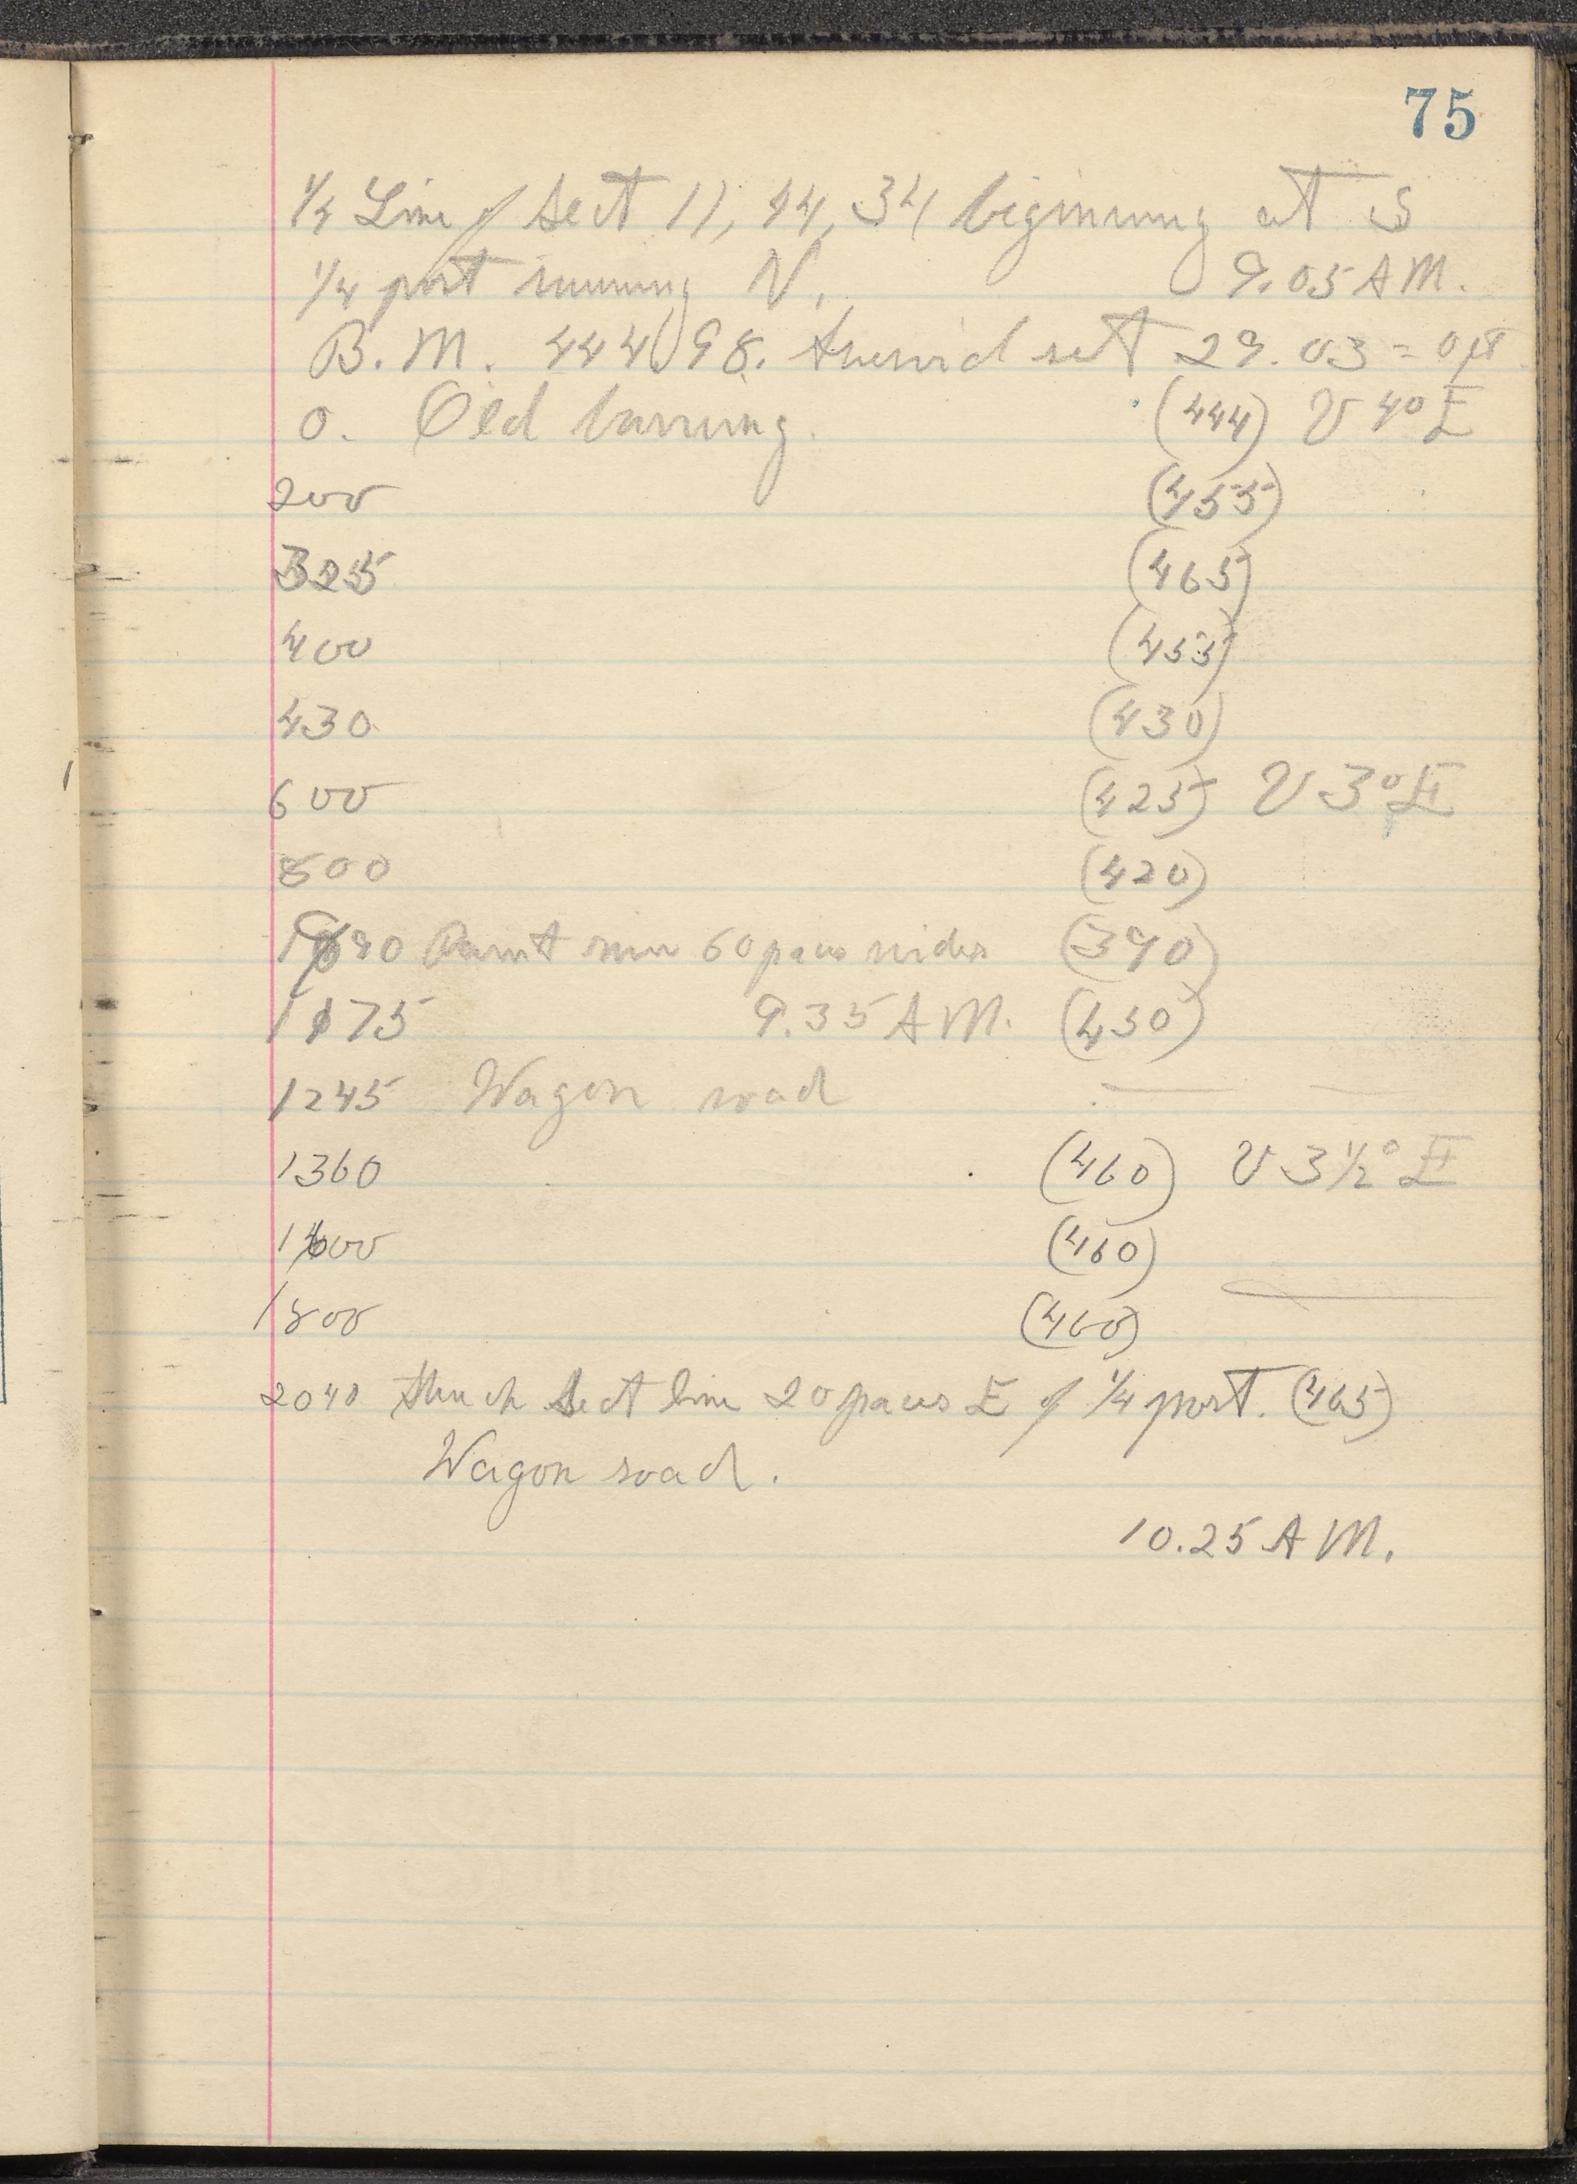 75
1/4 Line of Sect 11, 44, 34 beginning at S
1/4 post running N. 9.05 AM.
B.M. 444.98. Aneroid set 29.03 = 0 ft
0. Old burning. (444) V 4° E
200 (455)
325 (465)
400 (455)
430 (430)
600 (425) V 3° E
800 (420)
1090 Paint river 60 paces wide (390)
1175 9.35 AM. (450)
1245 Wagon road
1360 (460) V 3 1/2° E
1600 (460)
1800 (460)
2040 Struck Sect line 20 paces E of 1/4 post. (465)
Wagon road.
10.25 AM.